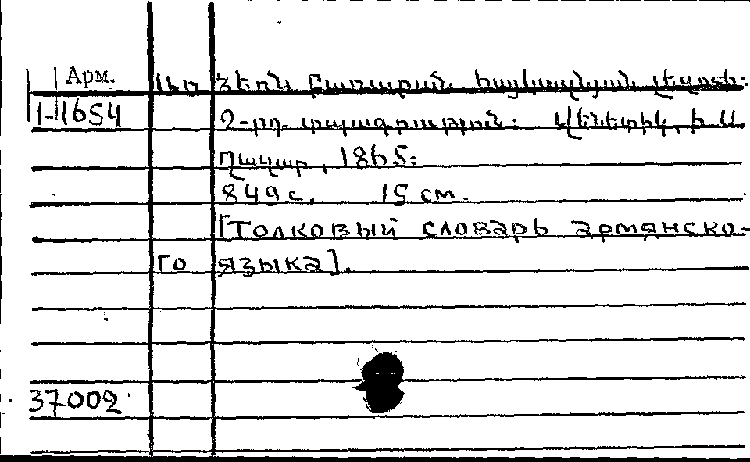 Арм.
1-11654
բառարան հայկական լեզուի:
2-րդ. տպագրություն: Վենետիկ, Ի Ս.
Ղազար, 1865:
849 с. 15 см.
[Толковый словарь армянско-
го языка].
37002